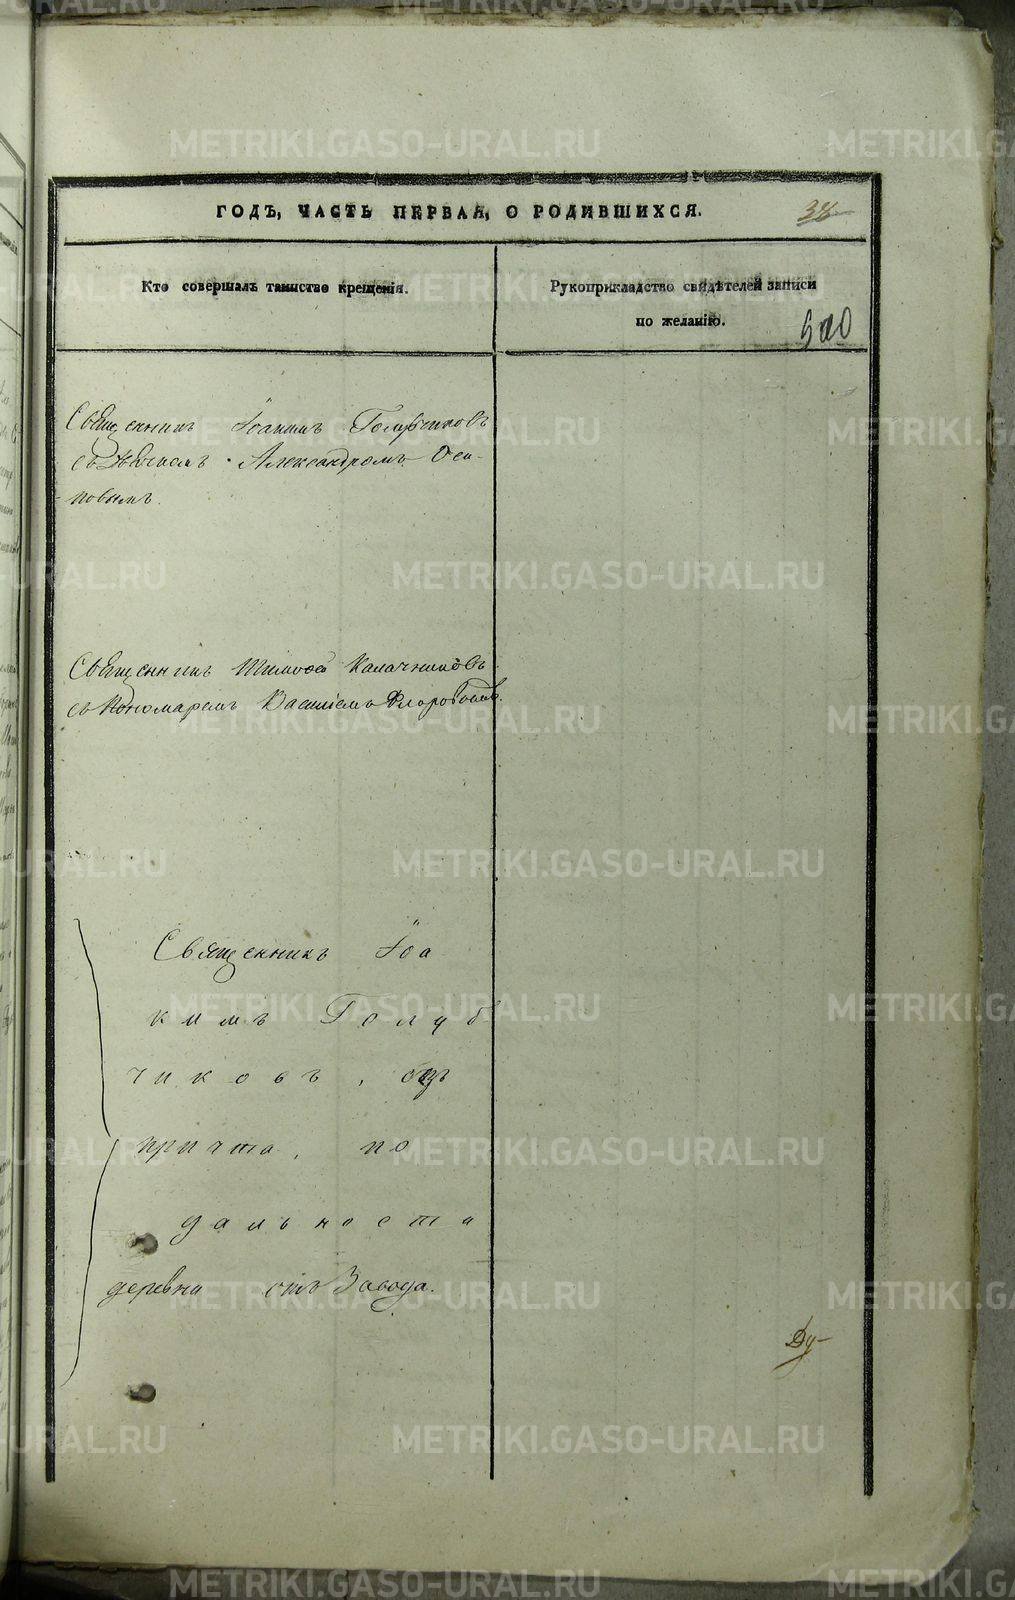 ГОДЪ, ЧАСТЬ ПЕРВАЯ, О РОДИВШИХСЯ.
38
Кто совершалъ таинство крещенія.
Рукоприкладство свидѣтелей записи
по желанію.
Священникъ Іоакимъ Голубчиковъ
съ Александромъ Оси-
повымъ.
Священникъ Тимофей Калачниковъ
съ Пономаремъ Василіемъ Флоровымъ.
Священникъ Іоа
кимъ Голуб
чиковъ, безъ
причта, по
дальности
деревни отъ Завода.
METRIKI.GASO-URAL.RU